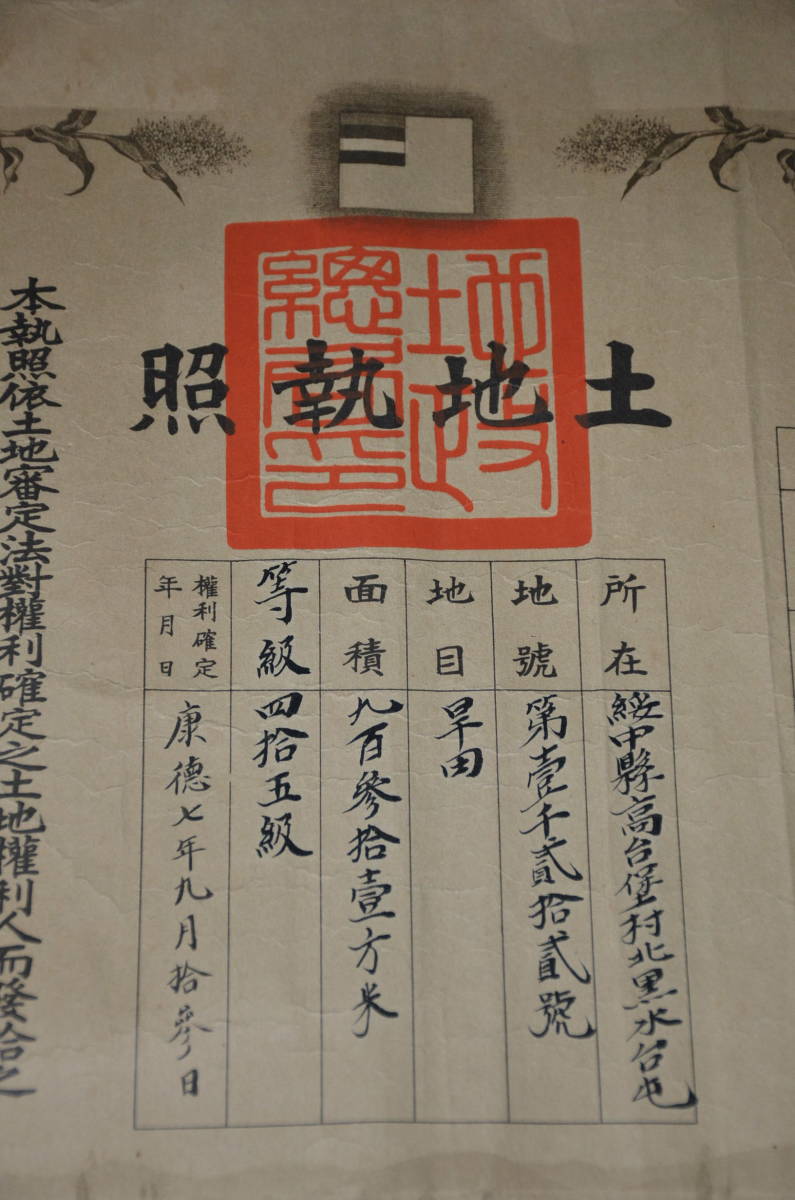 土地執照
地政總局印
所在
綏中縣高台堡村北黑水台屯
地號
第壹千貳拾貳號
地目
旱田
面積
九百參拾壹方米
等級
四拾五級
權利確定
年月日
康德七年九月拾參日
本執照依土地審定法對權利確定之土地權利人而發給之